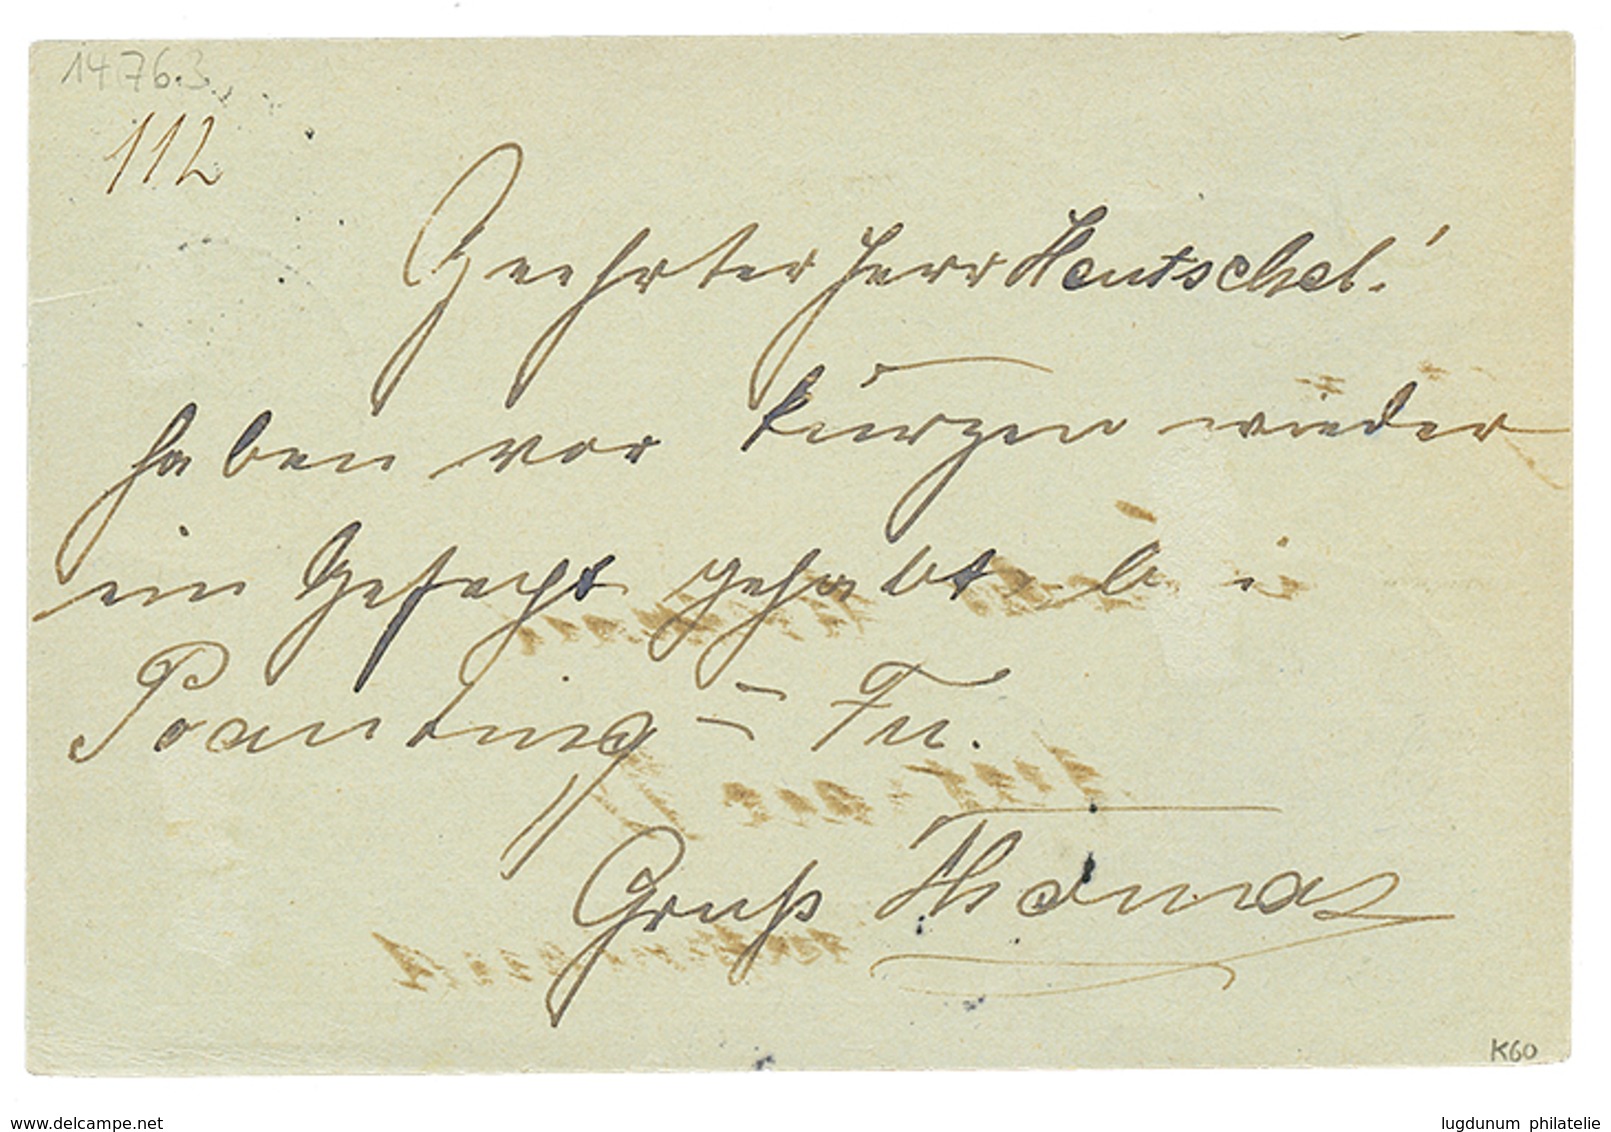 14763.
112
Geehrter Herr Hentschel!
haben vor kurzen wieder
ein Gefecht gehabt bei
Poanting-Fu.
Gruß Thomas
K60
www.delcampe.net
lugdunum philatelie